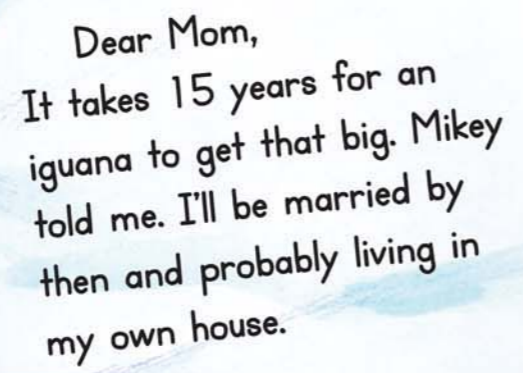 Dear Mom,
It takes 15 years for an
iguana to get that big. Mikey
told me. I'll be married by
then and probably living in
my own house.